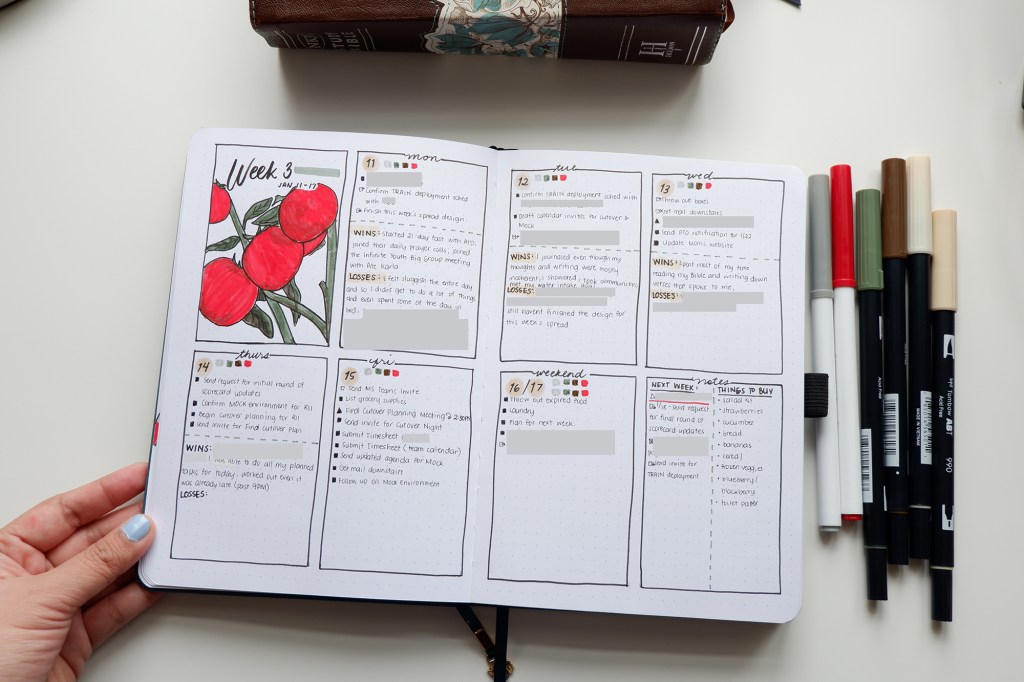 STUDY BIBLE
Week 3
JAN 11-17
mon
11
Confirm TRAIN deployment sched
with
Finish this week's spread design
WINS: started 21-day fast with
joined their daily prayer calls, joined
the Infinite Youth Big Group meeting
with Ate Karla
LOSSES: I felt sluggish the entire day
and so I didn't get to do a lot of things
and even spent some of the day in
bed.
tue
12
Confirm TRAIN deployment sched with
Draft calendar invites for cutover &
Mock
WINS: I journaled even though my
thoughts and writing were mostly
incoherent, I showered, took communion,
met my water intake
LOSSES:
still haven't finished the design for
this week's spread
wed
13
Throw out boxes
Get mail downstairs
Send PTO notification for 1/22
Update Mom's website
WINS: Spent most of my time
reading my Bible and writing down
verses that spoke to me.
LOSSES:
thurs
14
Send request for initial round of
scorecard updates
Confirm MOCK environment for
Begin cutover planning for
Send invite for Final Cutover Plan
WINS:
I was able to do all my planned
tasks for today, worked out even if
was already late (past 9PM)
LOSSES:
fri
15
Send MS Teams invite
List grocery supplies
Final Cutover Planning Meeting @ 2:30PM
Send invite for Cutover Night
Submit Timesheet
Submit Timesheet (team calendar)
Send updated agenda for Mock
Get mail downstairs
Follow up on Mock Environment
weekend
16/17
Throw out expired food
Laundry
Plan for next week:
notes
NEXT WEEK:
send request
for final round of
scorecard updates
Send invite for
TRAIN deployment
THINGS TO BUY
• salad kit
• strawberries
• cucumber
• bread
• bananas
• frozen veggies
• blueberry/
blackberry
• toilet paper
Tombow ABT
990
Acid Free
MADE IN VIETNAM